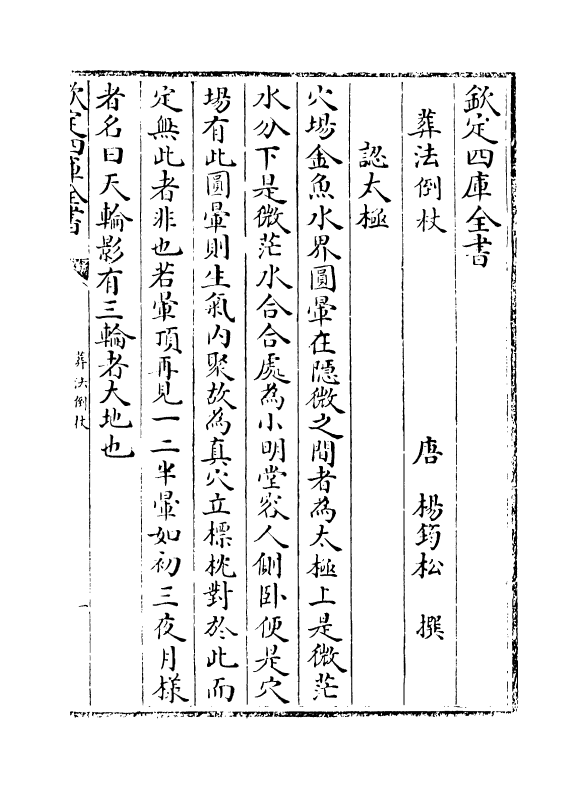 欽定四庫全書
葬法倒杖　唐　楊筠松　撰
認太極
穴場金魚水界圓暈在隱微之間者為太極上是微茫
水分下是微茫水合合處為小明堂容人側卧便是穴
場有此圓暈則生氣内聚故為真穴立標枕對於此而
定無此者非也若暈頂再見一二半暈如初三夜月様
者名曰天輪影有三輪者大地也
欽定四庫全書
葬法倒杖
一